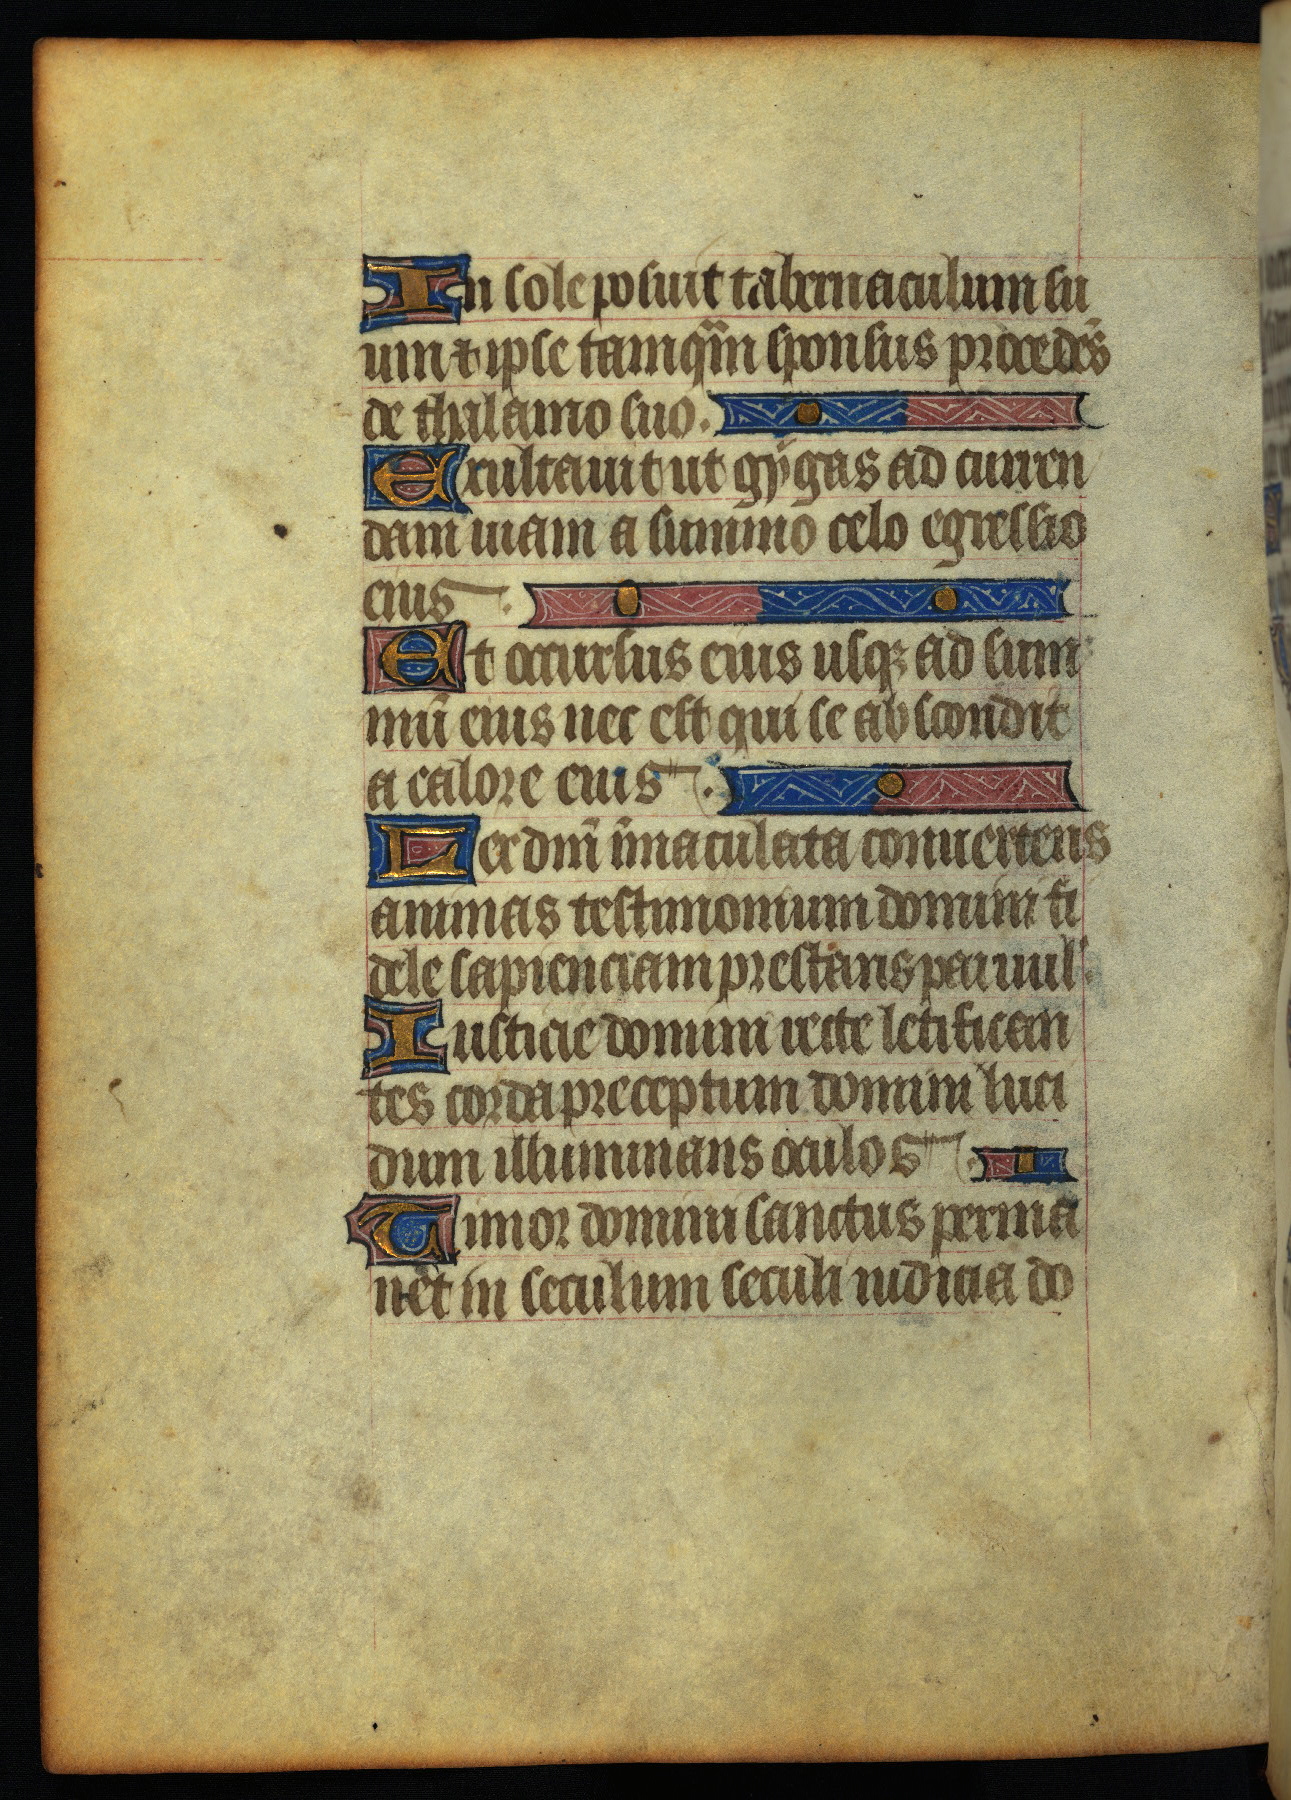 In sole posuit tabernaculum su
um ⁊ ipse tamq̄m sponsus procedēs
de thalamo suo.
Exultauit ut gygas ad curren
dam uiam a summo celo egressio
eius.
Et occursus eius usqꝫ ad sum
mū eius nec est qui se abscondit
a calore eius.
Lex dm̄ īmaculata conuertens
animas testimonium domini fi
dele sapienciam prestans paruul'.
Iusticie domini recte letifican
tes corda preceptum domini luci
dum illuminans oculos.
Timor domini sanctus perma
net in seculum seculi iudicia do